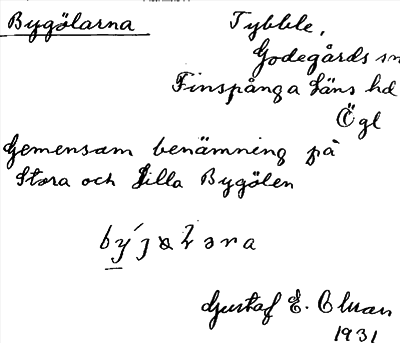 Bygölarna Tybble,
Godegårds sn
Finspånga läns hd
Ögl
Gemensam benämning på
Stora och Lilla Bygölen
Gustaf E. 
1931